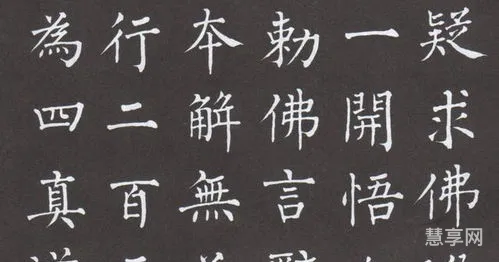 疑求佛
一開悟
勅佛言
夲解無
行二百
為四真
慧享网